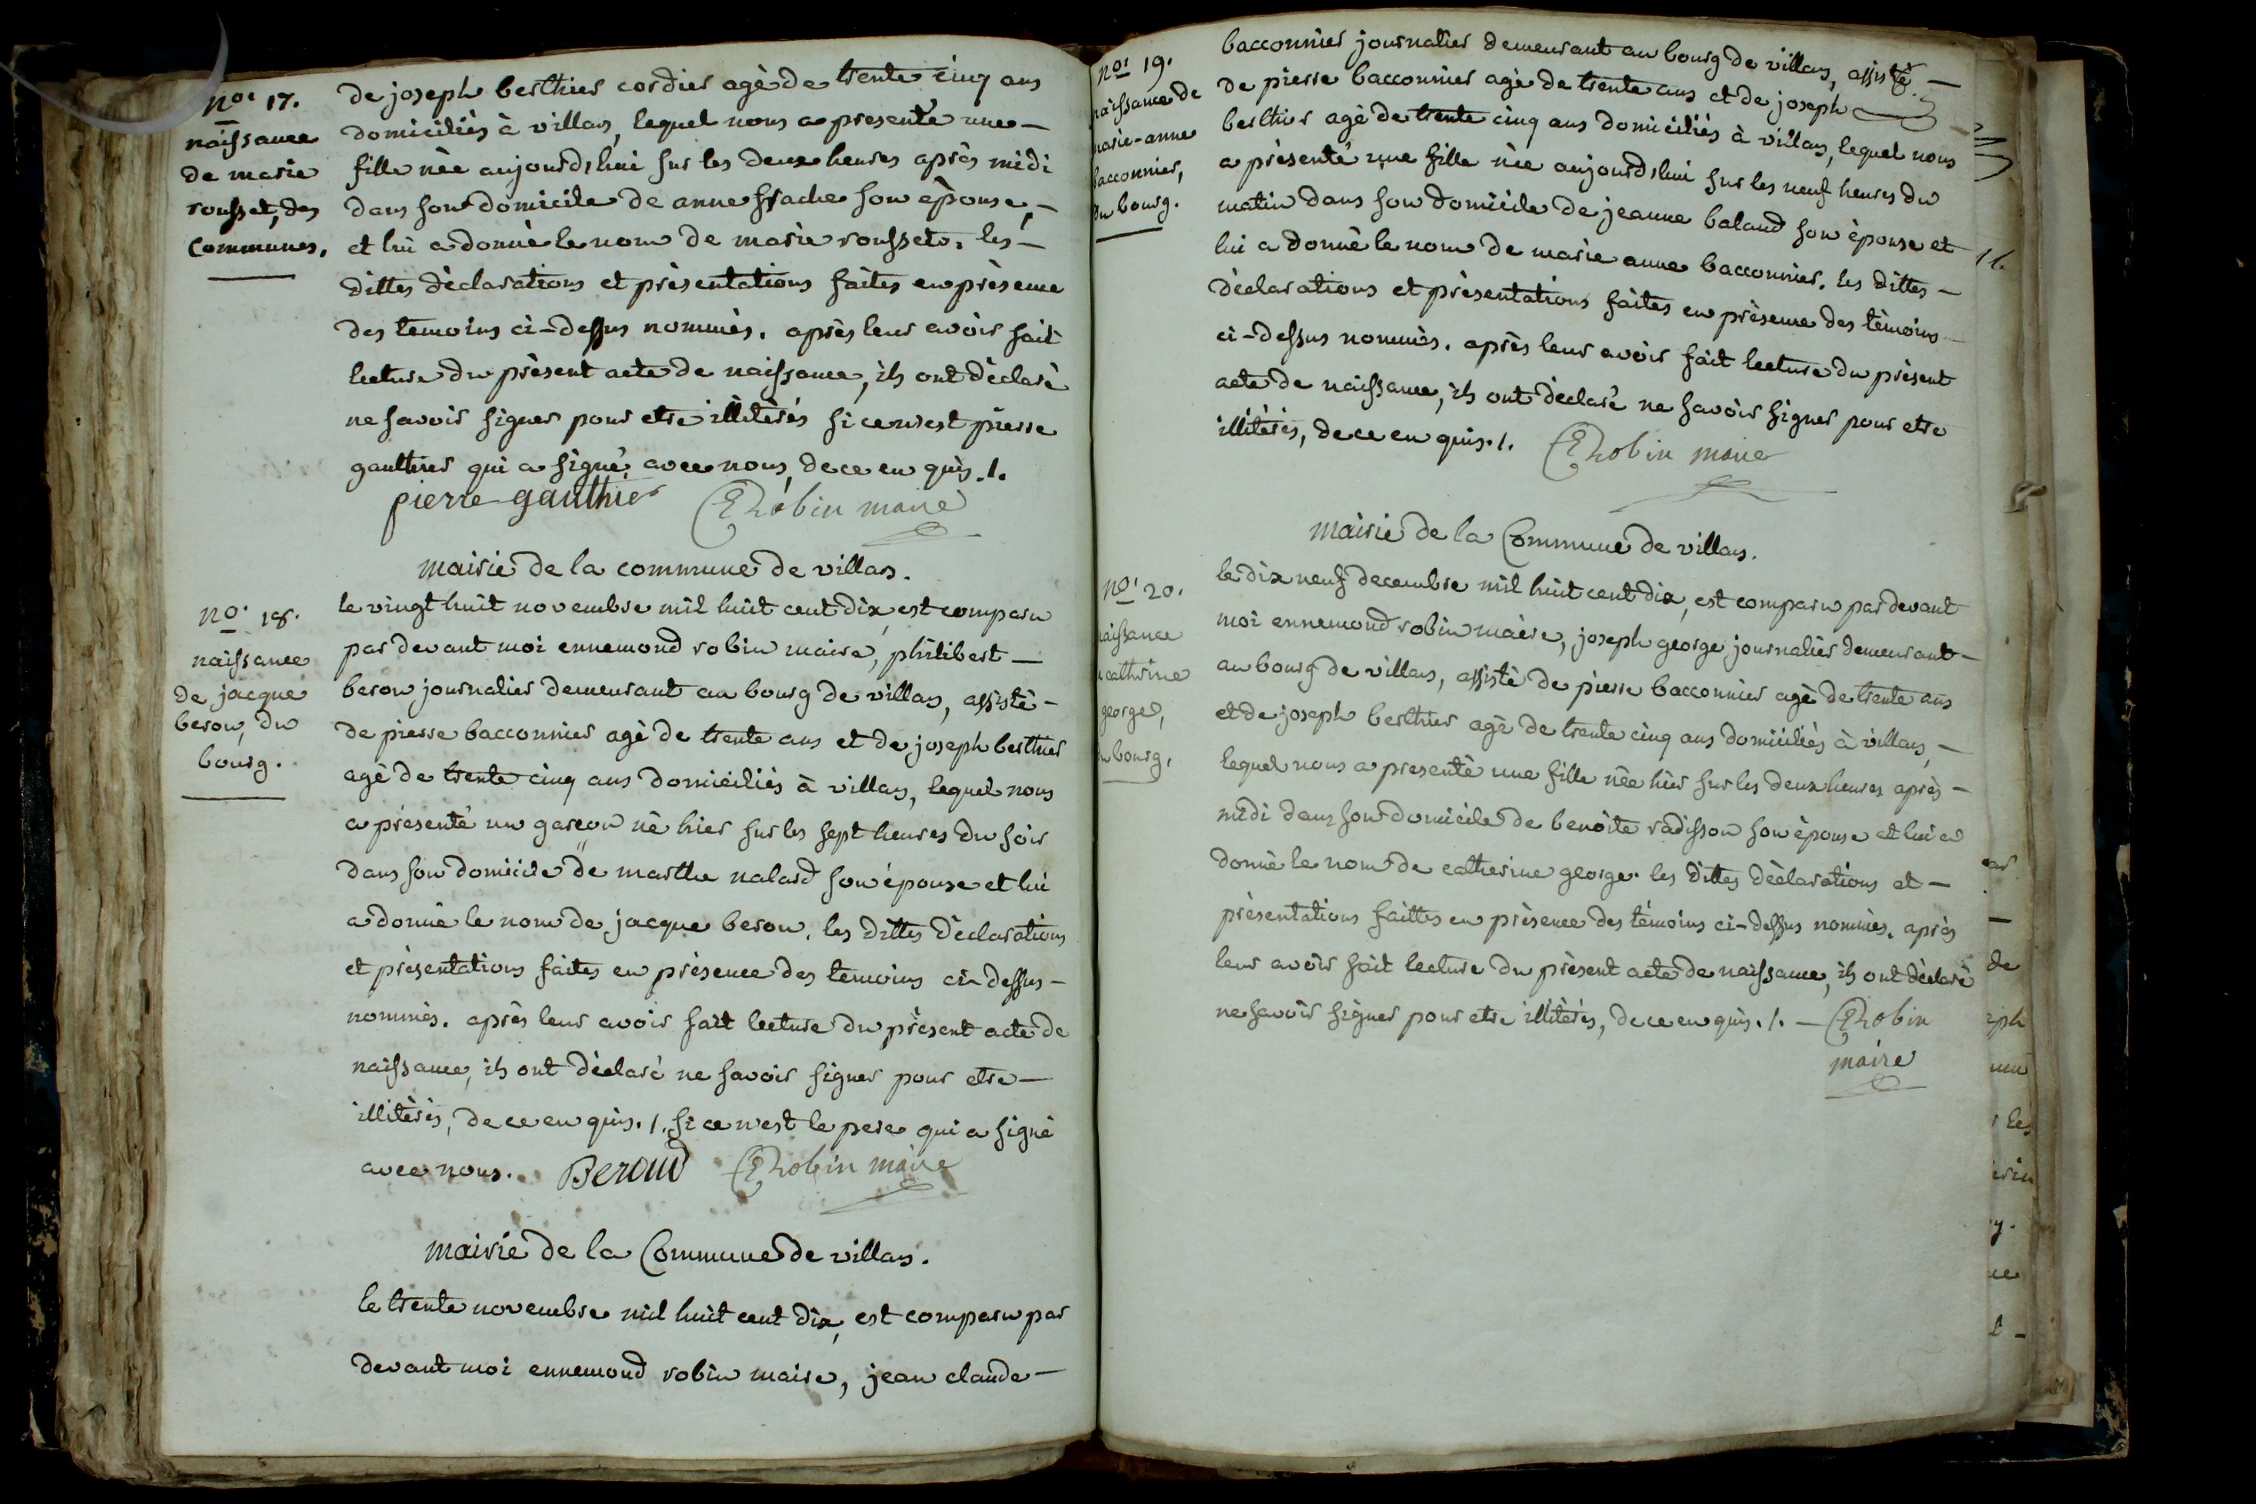 no. 17.
naissance
de marie
rousset, des
Communes.
de joseph berthier cordier agè de trente cinq ans
domiciliès à villars, lequel nous a presenté une —
fille nèe aujourd'hui sur les deux heures après midi
dans son domicile de anne frache son èpouse, —
et lui a donnè le nom de marie rousset. les —
dittes dèclarations et prèsentations faites en prèsence
des temoins ci-dessus nommès. après leur avoir fait
lecture du prèsent acte de naissance, ils ont dèclarè
ne savoir signer pour etre illitèrés si ce n'est pierre
gauthier qui a signé avec nous, de ce en quis./.
pierre gauthier ERobin maire
mairie de la commune de villars.
no. 18.
naissance
de jacque
beron, du
bourg.
le vingt huit novembre mil huit cent dix, est comparu
par devant moi ennemond robin maire, philibert —
beron journalier demeurant au bourg de villars, assistè -
de pierre bacconnier agè de trente ans et de joseph berthier
agè de trente cinq ans domiciliès à villars, lequel nous
a présenté un garcon nè hier sur les sept heures du soir
dans son domicile de marthe nalard son épouse et lui
a donnè le nom de jacque beron. les dittes dèclarations
et prèsentations faites en prèsence des temoins ci-dessus -
nommès. après leur avoir fait lecture du prèsent acte de
naissance, ils ont dèclaré ne savoir signer pour etre —
illitèrès, de ce en quis./. si ce n'est le pere qui a signè
avec nous. Beraud ERobin maire
mairie de la Commune de villars.
le trente novembre mil huit cent dix, est comparu par
devant moi ennemond robin maire, jean claude —
no. 19.
naissance de
marie-anne
bacconnier,
du bourg.
bacconnier journalier demeurant au bourg de villars, assistè —
de pierre bacconnier agè de trente ans et de joseph
berthier agè de trente cinq ans domiciliès à villars, lequel nous
a prèsenté une fille nèe aujourd'hui sur les neuf heures du
matin dans son domicile de jeanne baland son èpouse et
lui a donnè le nom de marie anne bacconnier. les dittes —
dèclarations et prèsentations faites en prèsence des tèmoins —
ci-dessus nommès. après leur avoir fait lecture du prèsent
acte de naissance, ils ont dèclaré ne savoir signer pour etre
illitèrès, de ce en quis./. ERobin maire
mairie de la Commune de villars.
no. 20.
naissance
catherine
george,
bourg.
le dix neuf decembre mil huit cent dix, est comparu par devant
moi ennemond robin maire, joseph george journalier demeurant —
au bourg de villars, assistè de pierre bacconnier agè de trente ans
et de joseph berthier agè de trente cinq ans domiciliès à villars, —
lequel nous a presentè une fille nèe hier sur les deux heures après —
midi dans son domicile de benoite radisson son èpouse et lui a
donnè le nom de catherine george. les dittes dèclarations et —
prèsentations faittes en prèsence des tèmoins ci-dessus nommès. après
leur avoir fait lecture du prèsent acte de naissance, ils ont dèclarè
ne savoir signer pour etre illitèrés, de ce en quis./. — ERobin
maire